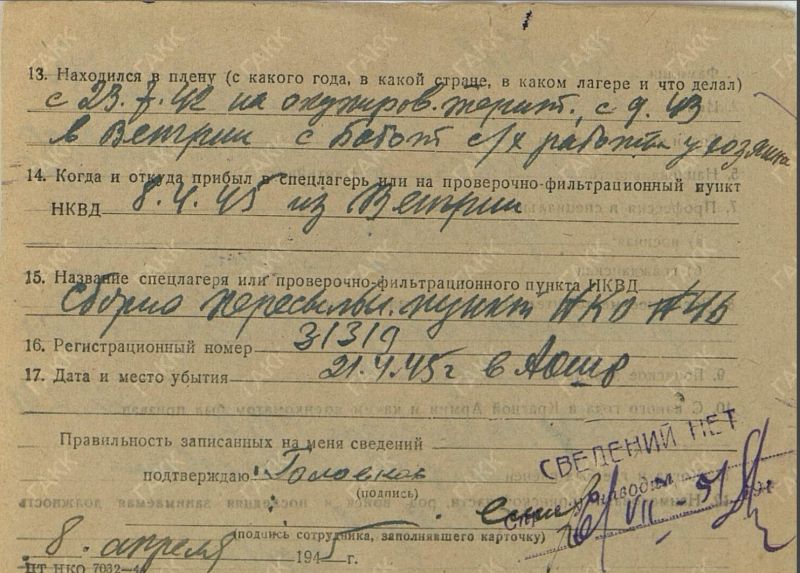 13. Находился в плену (с какого года, в какой стране, в каком лагере и что делал)
с 23.7.42 на окупиров. терит., с 9.43
в Венгрии с/х работы у хозяина
14. Когда и откуда прибыл в спецлагерь или на проверочно-фильтрационный пункт
НКВД 8.4.45 из Венгрии
15. Название спецлагеря или проверочно-фильтрационного пункта НКВД
Сборно пересыльн. пункт НКО №46
16. Регистрационный номер 31319
17. Дата и место убытия 21.4.45 г в
Правильность записанных на меня сведений
подтверждаю:
(подпись)
СВЕДЕНИЙ НЕТ
VII-51
(подпись сотрудника, заполнявшего карточку)
8. апреля 1945 г.
ЦТ НКО 7032-4
ГАКК